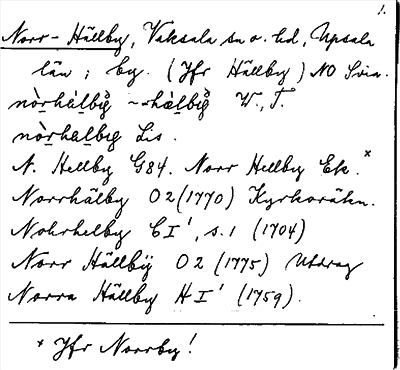 1.
Norr-Hällby, Vaksala sn o. hd, Upsala
län; by. (Jfr Hällby) NO Svia.
nòrhálbẙ ~-hàlbẙ W., T.
nòrhalby Lis.
N. Hellby G84. Norr Hellby Ek.*
Norrhälby O2 (1770) Kyrkoräkn.
Nohrhelby CI', s.1 (1704)
Norr Hällbÿ O2 (1775) Utdrag
Norra Hällby HI' (1759).
* Jfr Norrby!